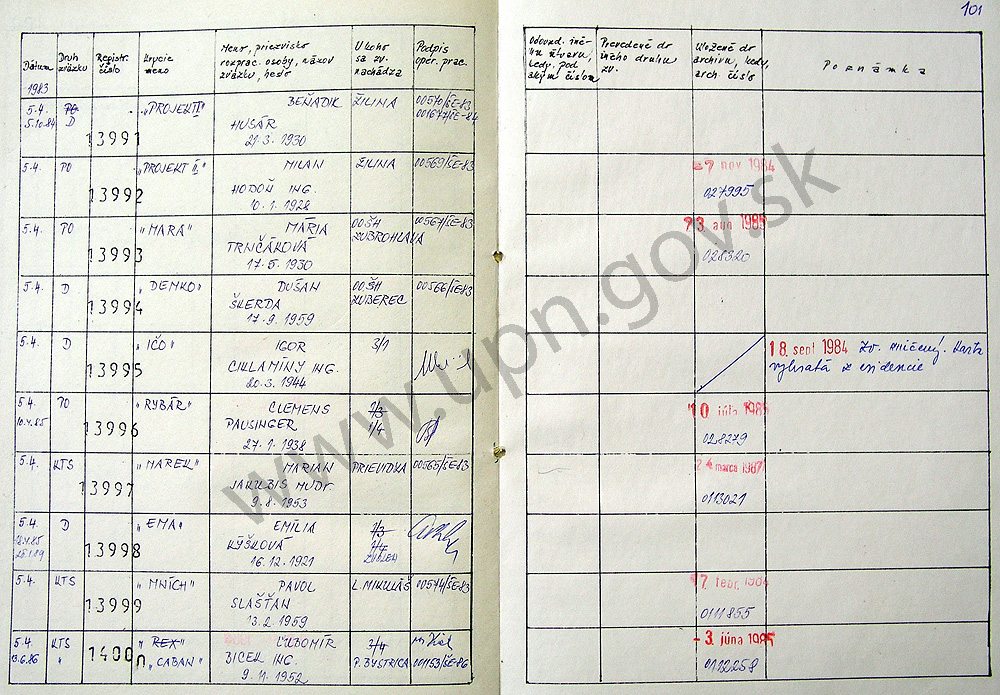 101
Dátum
Druh zväzku
Registr. číslo
Krycie meno
Meno, priezvisko rozprac. osoby, názov zväzku, heslo
U koho sa zv. nachádza
Podpis oper. prac.
kedy, pod akým číslom
Prevedené do iného druhu zv.
Uložené do archívu, kedy, arch číslo
Poznámka
1983
5.4. PO "PROJEKT I" BEŇADIK ŽILINA 00570/ŠE-83
5.10.84 D 13991 HUSÁR 001677/ŠE-84
21.3.1930
5.4. PO "PROJEKT II" MILAN ŽILINA 00569/ŠE-83 27 nov 1984
13992 HODOŇ ING. 027995
10.1.1928
5.4. PO "MARA" MÁRIA OOŠH 00567/ŠE-83
13993 TRNČÁKOVÁ ZUBROHLAVA 028320
17.5.1930
5.4. D "DEMKO" DUŠAN OOŠH 00566/ŠE-83
13994 ŠKERDA ZUBEREC
17.9.1959
5.4. D "IČO" IGOR 3/1 18. sept 1984 Zv. zničený. Karta
13995 CIKLAMÍNY ING. vybratá z evidencie
20.3.1944
5.4. PO "RYBÁR" CLEMENS 2/3 10 júla 1985
10.4.85 13996 PAUSINGER 1/4 028279
27.1.1938
5.4. KTS "MAREK" MARIAN PRIEVIDZA 00565/ŠE-83 24 marca 1987
13997 JAKUBIS MUDr. 0113021
9.8.1953
5.4. D "EMA" EMÍLIA 2/3
13998 KÝŠKOVÁ 1/4
16.12.1921 ZVOLEN
5.4. KTS "MNÍCH" PAVOL L. MIKULÁŠ 00574/ŠE-83 17 febr. 1984
13999 SLAŠŤAN 0111855
13.2.1959
5.4. KTS "REX" ĽUBOMÍR 3/4 - 3. júna 1985
13.6.86 " 14000 "CABAN" BICEK ING. P. BYSTRICA 001153/ŠE-86 0112258
9.11.1952
www.upn.gov.sk